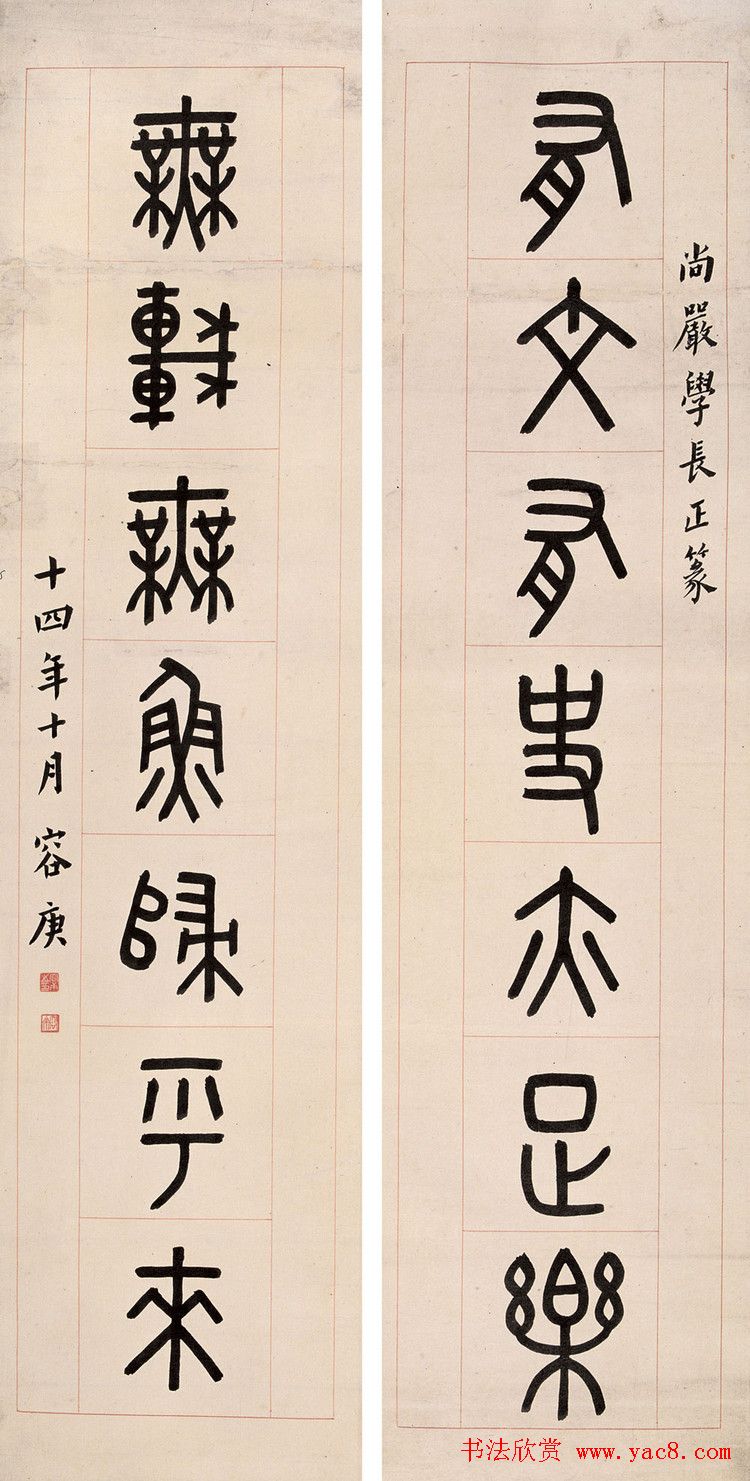 尚嚴學長正篆
有文有史亦足樂
無車無魚歸乎來
十四年十月 容庚
书法欣赏 www.yac8.com